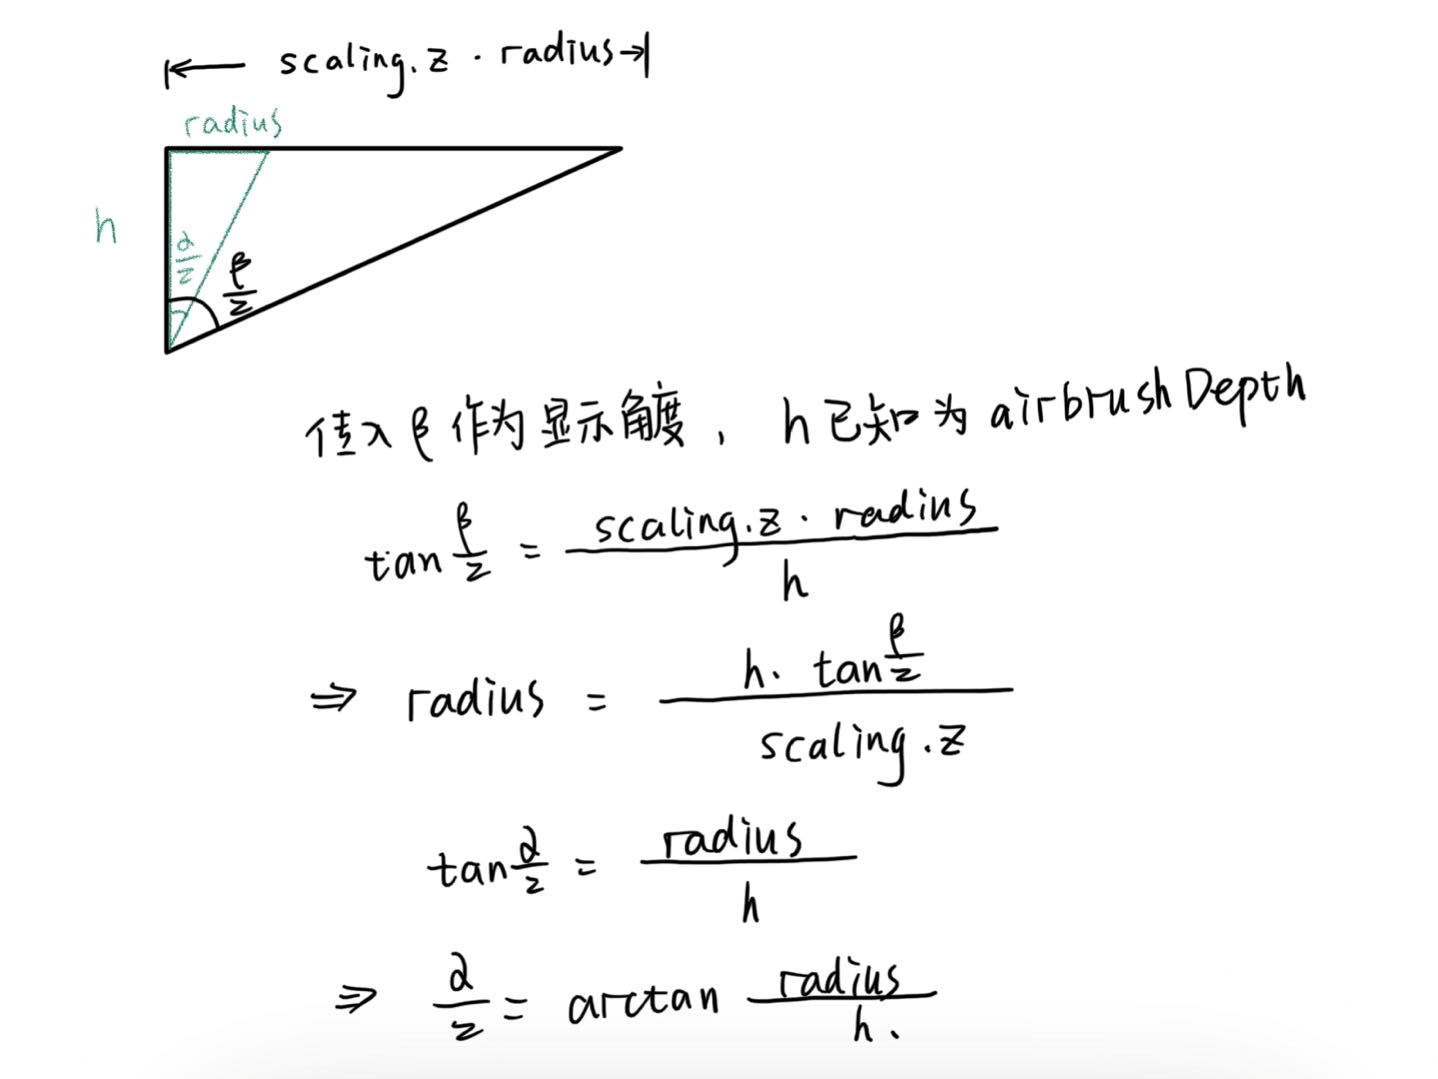 scaling.z · radius
radius
h
α/2
β/2
传入β作为显示角度， h已知为airbrushDepth
tan β/2 = scaling.z · radius / h
⇒ radius = h · tan β/2 / scaling.z
tan α/2 = radius / h
⇒ α/2 = arctan radius / h.